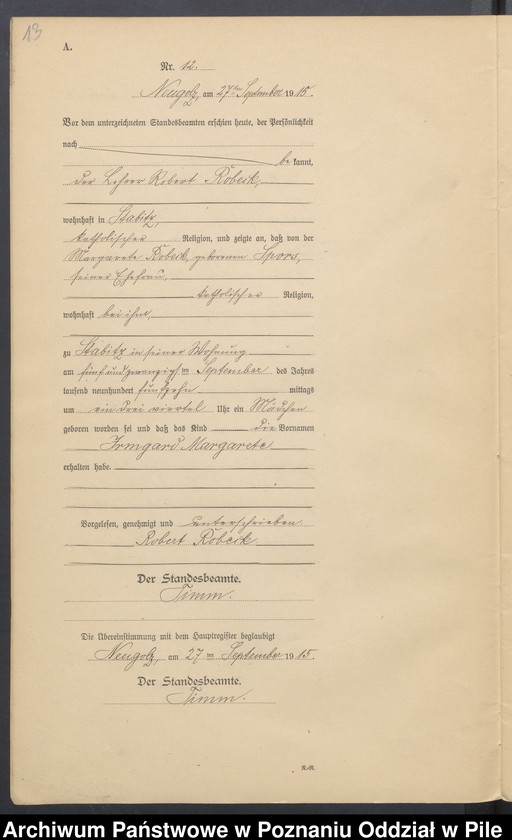 13
A.
Nr. 12.
Neugolz, am 27ten September 1915.
Vor dem unterzeichneten Standesbeamten erschien heute, der Persönlichkeit
nach
bekannt,
der Lehrer Robert Robeck,
wohnhaft in Stabitz,
katholischer Religion, und zeigte an, daß von der
Margarete Robeck, geborenen Spors,
seiner Ehefrau,
katholischer Religion,
wohnhaft bei ihm,
zu Stabitz in seiner Wohnung
am fünfundzwanzigsten September des Jahres
tausend neunhundert fünfzehn mittags
um ein drei viertel Uhr ein Mädchen
geboren worden sei und daß das Kind die Vornamen
Irmgard Margarete
erhalten habe.
Vorgelesen, genehmigt und unterschrieben
Robert Robeck
Der Standesbeamte.
Timm.
Die Übereinstimmung mit dem Hauptregister beglaubigt
Neugolz, am 27ten September 1915.
Der Standesbeamte.
Timm.
Archiwum Państwowe w Poznaniu Oddział w Pile